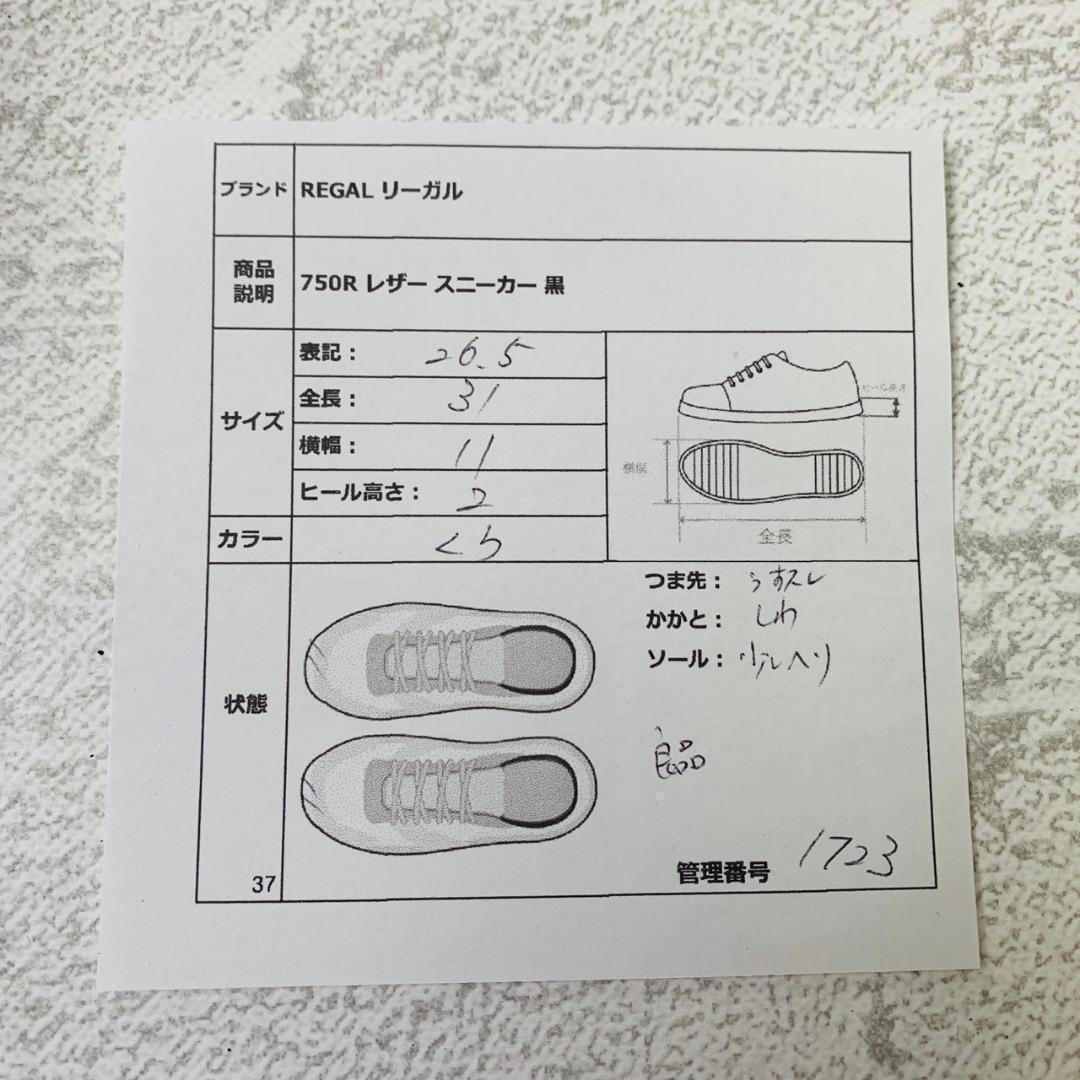 ブランド REGAL リーガル
商品説明 750R レザー スニーカー 黒
サイズ
表記： 26.5
全長： 31
横幅： 11
ヒール高さ： 2
ヒール高さ
横幅
全長
カラー くろ
状態
つま先： うすスレ
かかと： しわ
ソール： 少しヘリ
良品
管理番号 1723
37